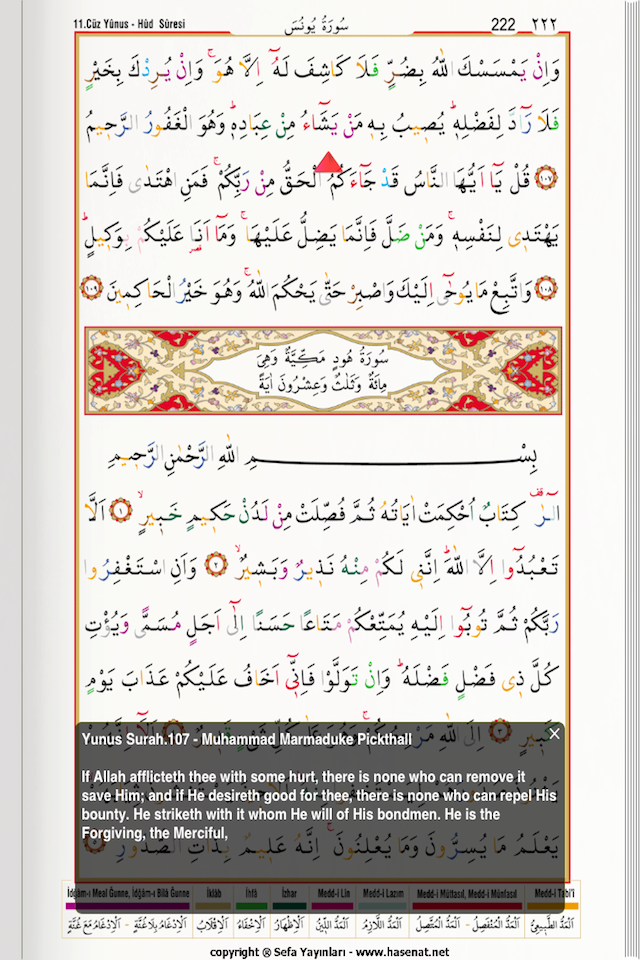 11.Cüz Yûnus - Hûd Sûresi سُورَةُ يُونُسَ 222 ٢٢٢
وَاِنْ يَمْسَسْكَ اللّٰهُ بِضُرٍّ فَلَا كَاشِفَ لَهُٓ اِلَّا هُوَۚ وَاِنْ يُرِدْكَ بِخَيْرٍ
فَلَا رَٓادَّ لِفَضْلِه۪ۜ يُص۪يبُ بِه۪ مَنْ يَشَٓاءُ مِنْ عِبَادِه۪ۜ وَهُوَ الْغَفُورُ الرَّح۪يمُ
١٠٧ قُلْ يَٓا اَيُّهَا النَّاسُ قَدْ جَٓاءَكُمُ الْحَقُّ مِنْ رَبِّكُمْۚ فَمَنِ اهْتَدٰى فَاِنَّمَا
يَهْتَد۪ي لِنَفْسِه۪ۚ وَمَنْ ضَلَّ فَاِنَّمَا يَضِلُّ عَلَيْهَاۚ وَمَٓا اَنَا۬ عَلَيْكُمْ بِوَك۪يلٍۜ
١٠٨ وَاتَّبِعْ مَا يُوحٰٓى اِلَيْكَ وَاصْبِرْ حَتّٰى يَحْكُمَ اللّٰهُۚ وَهُوَ خَيْرُ الْحَاكِم۪ينَ ١٠٩
سُورَةُ هُودٍ مَكِّيَّةٌ وَهِيَ
مِائَةٌ وَثَلٰثٌ وَعِشْرُونَ اٰيَةً
بِسْمِ اللّٰهِ الرَّحْمٰنِ الرَّح۪يمِ
الٓرٰ۠ كِتَابٌ اُحْكِمَتْ اٰيَاتُهُ ثُمَّ فُصِّلَتْ مِنْ لَدُنْ حَك۪يمٍ خَب۪يرٍۙ ١ اَلَّا
تَعْبُدُٓوا اِلَّا اللّٰهَۜ اِنَّن۪ي لَكُمْ مِنْهُ نَذ۪يرٌ وَبَش۪يرٌۙ ٢ وَاَنِ اسْتَغْفِرُوا
رَبَّكُمْ ثُمَّ تُوبُٓوا اِلَيْهِ يُمَتِّعْكُمْ مَتَاعًا حَسَنًا اِلٰٓى اَجَلٍ مُسَمًّى وَيُؤْتِ
كُلَّ ذ۪ي فَضْلٍ فَضْلَهُۜ وَاِنْ تَوَلَّوْا فَاِنّ۪ٓي اَخَافُ عَلَيْكُمْ عَذَابَ يَوْمٍ
كَب۪يرٍ ٣ اِلَى اللّٰهِ
Yunus Surah.107 - Muhammad Marmaduke Pickthall
If Allah afflicteth thee with some hurt, there is none who can remove it
save Him; and if He desireth good for thee, there is none who can repel His
bounty. He striketh with it whom He will of His bondmen. He is the
Forgiving, the Merciful,
يَعْلَمُ مَا يُسِرُّونَ وَمَا يُعْلِنُونَۚ اِنَّهُ عَل۪يمٌ بِذَاتِ الصُّدُورِ
İdğâm-ı Meal Ğunne, İdğâm-ı Bilâ Ğunne İklâb İhfâ İzhar Medd-i Lin Medd-i Lazım Medd-i Müttasıl, Medd-i Münfasıl Medd-i Tabî'î
اَلْاِدْغَامُ مَعَ غُنَّةٍ - اَلْاِدْغَامُ بِلَاغُنَّةٍ اَلْاِقْلَابُ اَلْاِخْفَاءُ اَلْاِظْهَارُ اَلْمَدُّ اللّٖينُ اَلْمَدُّ اللَّازِمُ اَلْمَدُّ الْمُتَّصِلُ - اَلْمَدُّ الْمُنْفَصِلُ اَلْمَدُّ الطَّبٖيعِيُّ
copyright ® Sefa Yayınları - www.hasenat.net